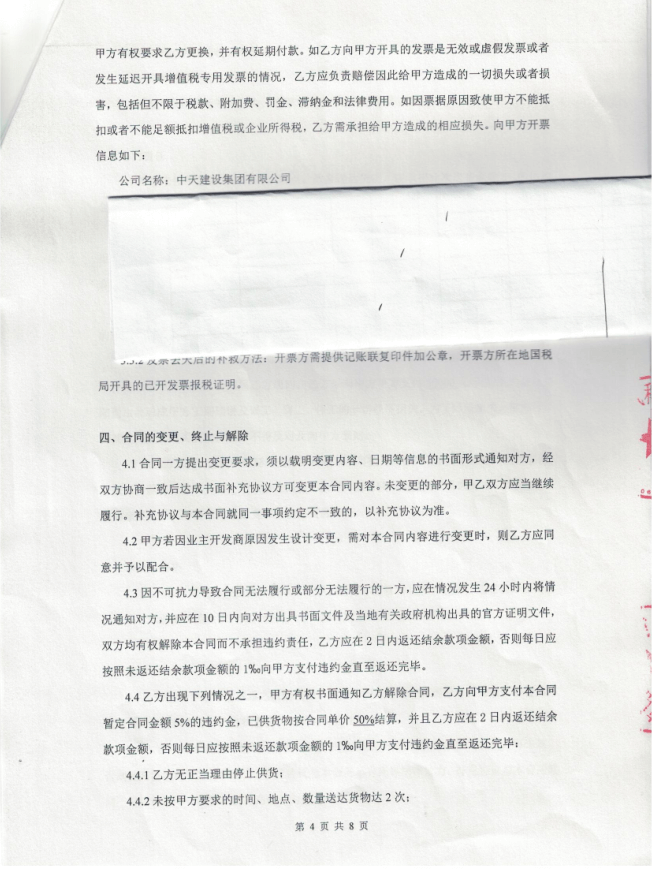 甲方有权要求乙方更换，并有权延期付款。如乙方向甲方开具的发票是无效或虚假发票或者
发生延迟开具增值税专用发票的情况，乙方应负责赔偿因此给甲方造成的一切损失或者损
害，包括但不限于税款、附加费、罚金、滞纳金和法律费用。如因票据原因致使甲方不能抵
扣或者不能足额抵扣增值税或企业所得税，乙方需承担给甲方造成的相应损失。向甲方开票
信息如下：
公司名称：中天建设集团有限公司
3.5.2 发票丢失后的补救方法：开票方需提供记账联复印件加公章，开票方所在地国税
局开具的已开发票报税证明。
四、合同的变更、终止与解除
4.1 合同一方提出变更要求，须以载明变更内容、日期等信息的书面形式通知对方，经
双方协商一致后达成书面补充协议方可变更本合同内容。未变更的部分，甲乙双方应当继续
履行。补充协议与本合同就同一事项约定不一致的，以补充协议为准。
4.2 甲方若因业主开发商原因发生设计变更，需对本合同内容进行变更时，则乙方应同
意并予以配合。
4.3 因不可抗力导致合同无法履行或部分无法履行的一方，应在情况发生 24 小时内将情
况通知对方，并应在 10 日内向对方出具书面文件及当地有关政府机构出具的官方证明文件，
双方均有权解除本合同而不承担违约责任，乙方应在 2 日内返还结余款项金额，否则每日应
按照未返还结余款项金额的 1‰向甲方支付违约金直至返还完毕。
4.4 乙方出现下列情况之一，甲方有权书面通知乙方解除合同，乙方向甲方支付本合同
暂定合同金额 5%的违约金，已供货物按合同单价 50%结算，并且乙方应在 2 日内返还结余
款项金额，否则每日应按照未返还款项金额的 1‰向甲方支付违约金直至返还完毕：
4.4.1 乙方无正当理由停止供货；
4.4.2 未按甲方要求的时间、地点、数量送达货物达 2 次；
第 4 页 共 8 页